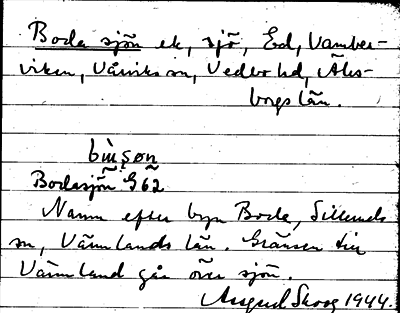 Boda sjön ek, sjö, Ed, Vamber-
viken, Vårviks sn, Vedbo hd, Älvs-
borgs län.
Bodasjön G62
Namn efter byn Boda, Silleruds
sn, Värmlands län. Gränsen till
Värmland går över sjön.
Skoog 1944.